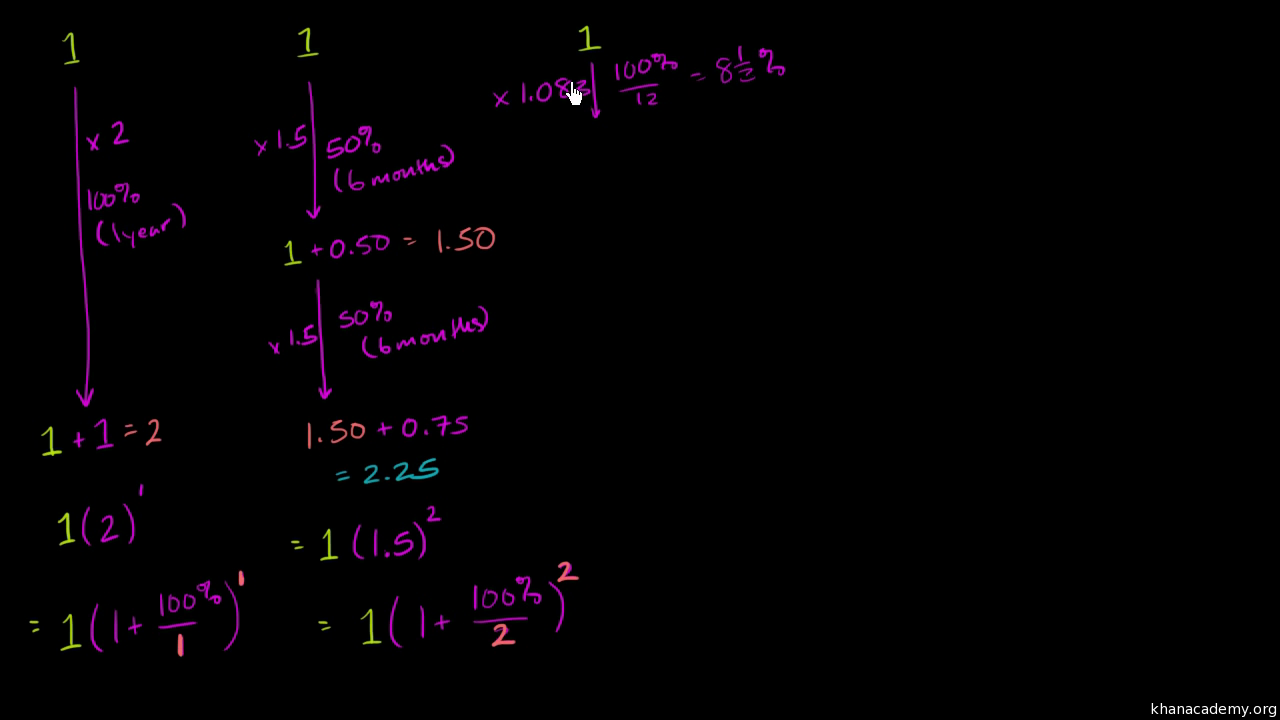 1
× 2
100%
(1 year)
1 + 1 = 2
1(2)^1
= 1(1 + 100%/1)^1
1
× 1.5
50%
(6 months)
1 + 0.50 = 1.50
× 1.5
50%
(6 months)
1.50 + 0.75
= 2.25
= 1(1.5)^2
= 1(1 + 100%/2)^2
1
100%/12 = 8 1/3 %
khanacademy.org